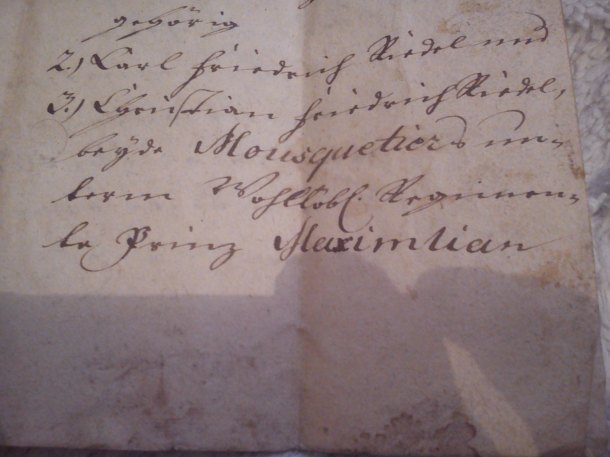 gehörig
2.) Carl Friedrich Riedel und
3.) Christian Friedrich Riedel,
beyde Mousquetiers un-
term Wohllöbl. Regimen-
te Prinz Maximilian